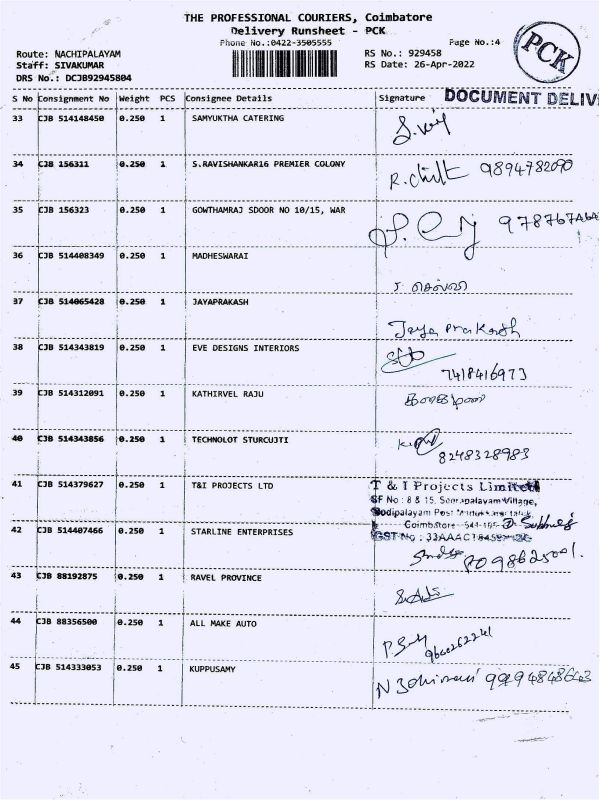 THE PROFESSIONAL COURIERS, Coimbatore
Delivery Runsheet - PCK
Phone No.:0422-3505555
Page No.:4
PCK
Route: NACHIPALAYAM
RS No.: 929458
Staff: SIVAKUMAR
RS Date: 26-Apr-2022
DRS No.: DCJB92945804
S No Consignment No Weight PCS Consignee Details Signature DOCUMENT DELIV
33 CJB 514148450 0.250 1 SAMYUKTHA CATERING
34 CJB 156311 0.250 1 S.RAVISHANKAR16 PREMIER COLONY 9894782090
35 CJB 156323 0.250 1 GOWTHAMRAJ SDOOR NO 10/15, WAR
36 CJB 514408349 0.250 1 MADHESWARAI
37 CJB 514065428 0.250 1 JAYAPRAKASH Jaya Prakash
38 CJB 514343819 0.250 1 EVE DESIGNS INTERIORS 7418416973
39 CJB 514312091 0.250 1 KATHIRVEL RAJU
40 CJB 514343856 0.250 1 TECHNOLOT STURCUJTI 8248328983
41 CJB 514379627 0.250 1 T&I PROJECTS LTD T & I Projects Limited
SF No : 8 & 15, Seerapalayam Village,
42 CJB 514407466 0.250 1 STARLINE ENTERPRISES
43 CJB 88192875 0.250 1 RAVEL PROVINCE
44 CJB 88356500 0.250 1 ALL MAKE AUTO
45 CJB 514333053 0.250 1 KUPPUSAMY